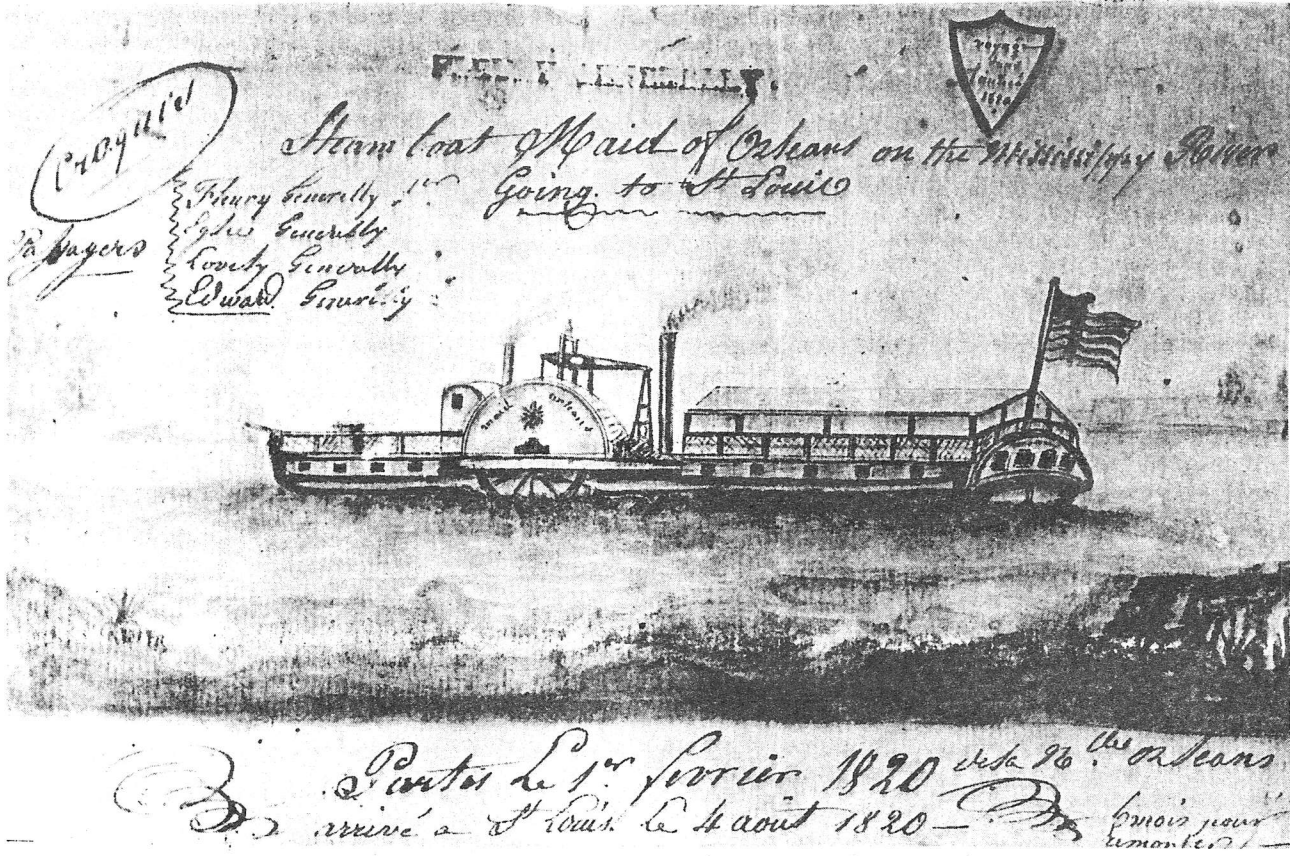 Steam boat Maid of Orleans on the Mississippy River
Going to St Louis
Croquis
Passagers
Fleury Generelly
Generelly
Lovely Generelly
Edward Generelly
maid orleans
Partis Le 1er fevrier 1820 de la Nlle Orleans
arrivé a St Louis le 4 aout 1820 —
6 mois pour
remonter